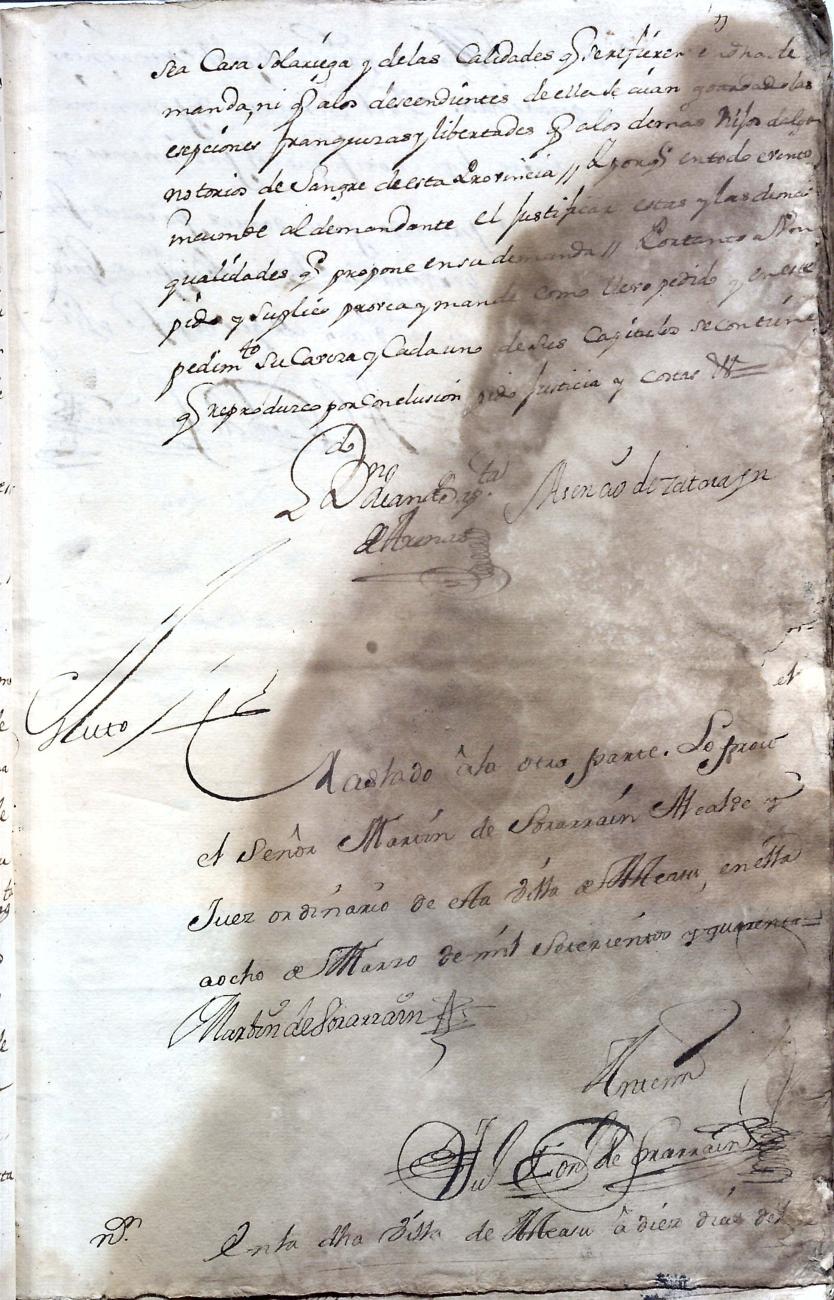 sea Casa Solariega y de las Calidades q̃ se refieren en dha de
manda, ni q̃ a los descendientes de ella se aían guardado las
esepciones franquezas y libertades q̃ a los demas hijos dalgo
notorios de Sangre de esta Provincia // Y porq̃ en todo evento
incumbe al demandante el justificar estas y las demas
qualidades q̃ propone en su demanda // Por tanto a Vm
pido y suplico provea y mande como llevo pedido y en este
pedim.to su Caveza y Cada uno de sus Capitulos se contiene
q̃ reproduzco por Conclusion pido Justicia y costas &=
Asencio de
Auto
Traslado â la otra parte. Lo proveio
el Señor Martin de Sorarrain Alcalde y
Juez ordinario de esta Villa de Alegria, en ella
a ocho de Marzo de mil setecientos y quarenta=
Martin de Sorarrain
Antemi
de Sorarrain
n.on
En la dha Villa de â diez dias del